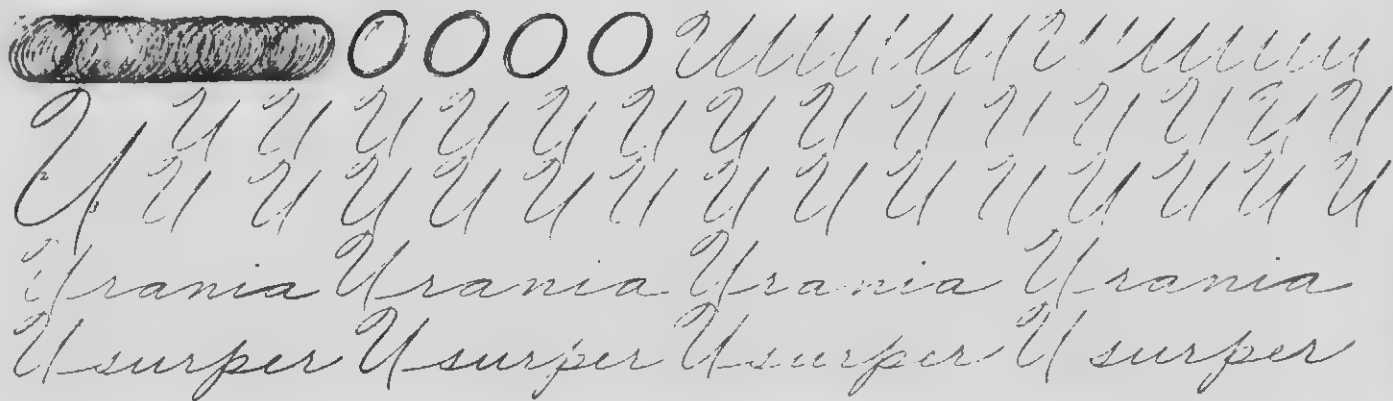 O O O O
U U U U U U U U U U U U U U U
2 3 U U U U U U U U U U U U U U
Urania Urania Urania Urania
Usurper Usurper Usurper Usurper